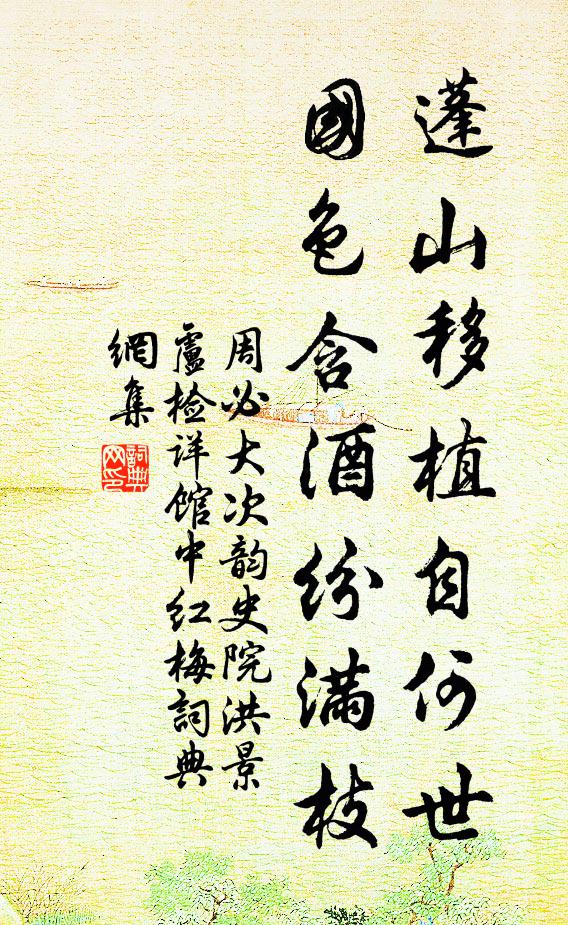 蓬山移植自何世
國色含酒纷满枝
周必大次韵史院洪景
盧检详馆中红梅詞典
網集
詞典
网印